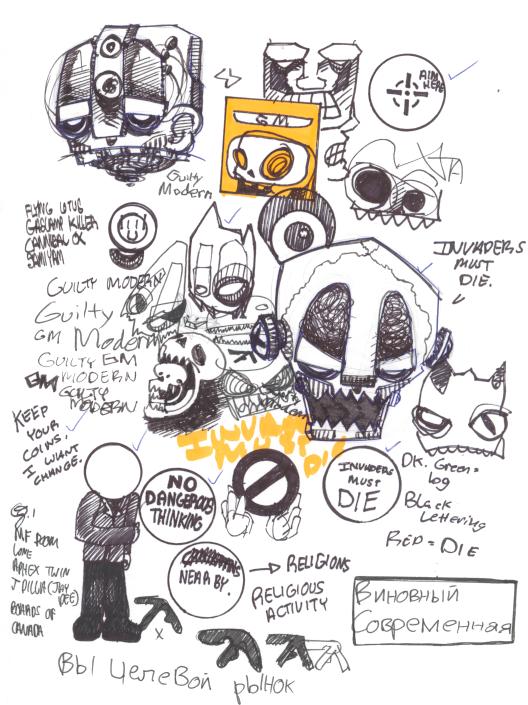 AIM
HERE
GM
Guilty
Modern
FLYING LOTUS
GASLAMP KILLER
CANNIBAL OX
SAMIYAM
GUILTY MODERN
Guilty
GM Modern
GUILTY GM
GM MODERN
GUILTY
MODERN
INVADERS
MUST
DIE.
KEEP
YOUR
COINS,
I WANT
CHANGE.
INVADERS
MUST
DIE
NO
DANGEROUS
THINKING
INVADERS
MUST
DIE
DK. Green =
log
Black
Lettering
RED = DIE
MF DOOM
APHEX TWIN
J DILLA (JAY
DEE)
BOARDS OF
CANADA
NEAR BY.
RELIGIONS
RELIGIOUS
ACTIVITY
Виновный
Современная
ВЫ целевой рынок